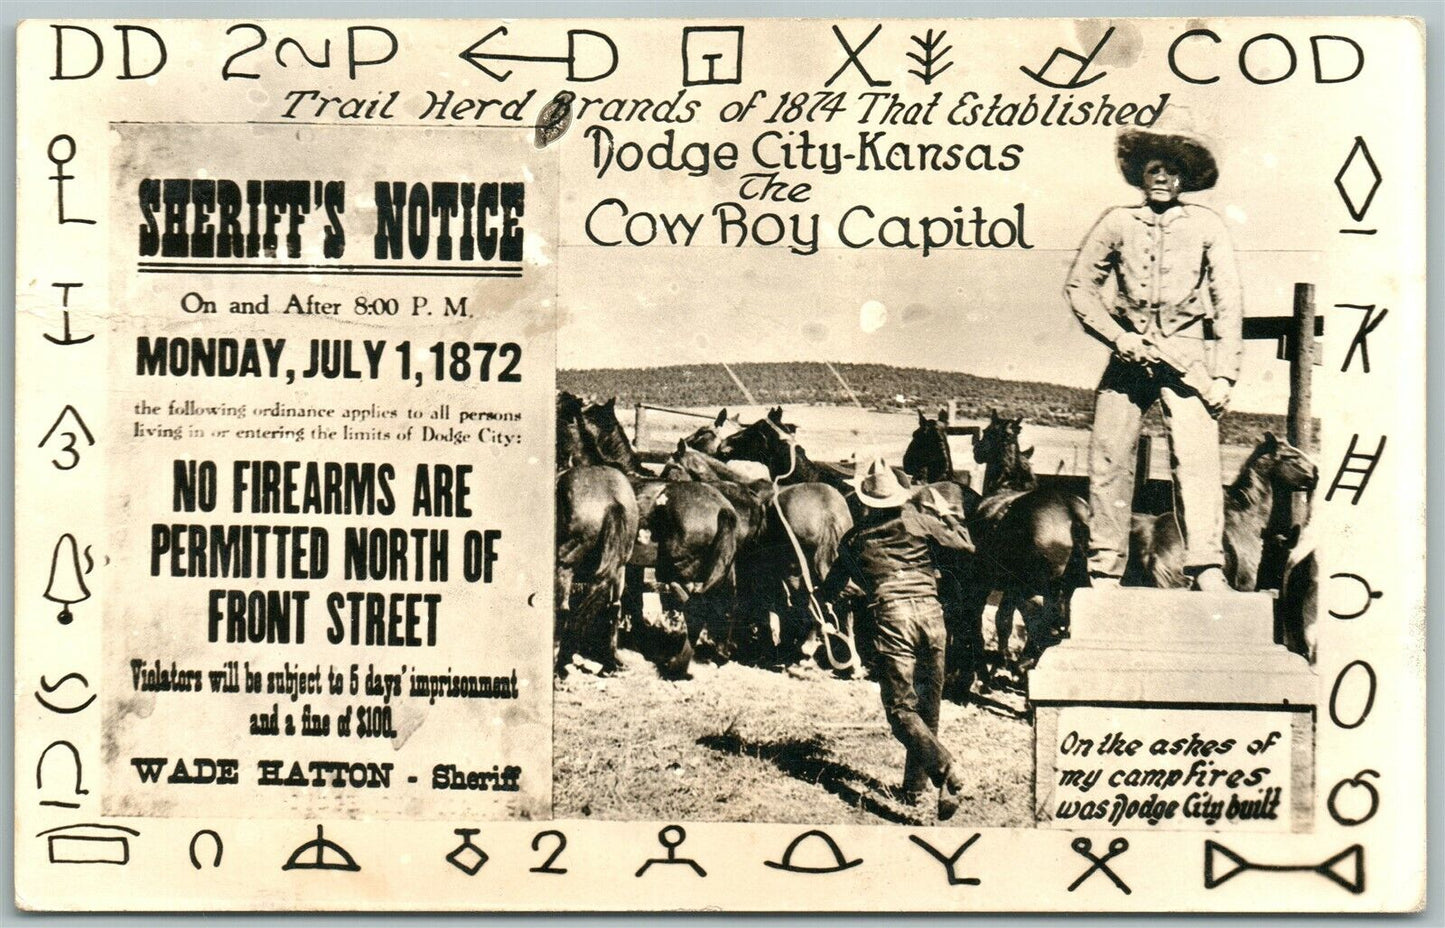 DD 2~P ←D T X COD
Trail Herd Brands of 1874 That Established
Dodge City-Kansas
The
CowBoy Capitol
SHERIFF'S NOTICE
On and After 8:00 P. M.
MONDAY, JULY 1, 1872
the following ordinance applies to all persons
living in or entering the limits of Dodge City:
NO FIREARMS ARE
PERMITTED NORTH OF
FRONT STREET
Violators will be subject to 5 days' imprisonment
and a fine of $100.
WADE HATTON - Sheriff
On the ashes of
my campfires
was Dodge City built
3
K
2